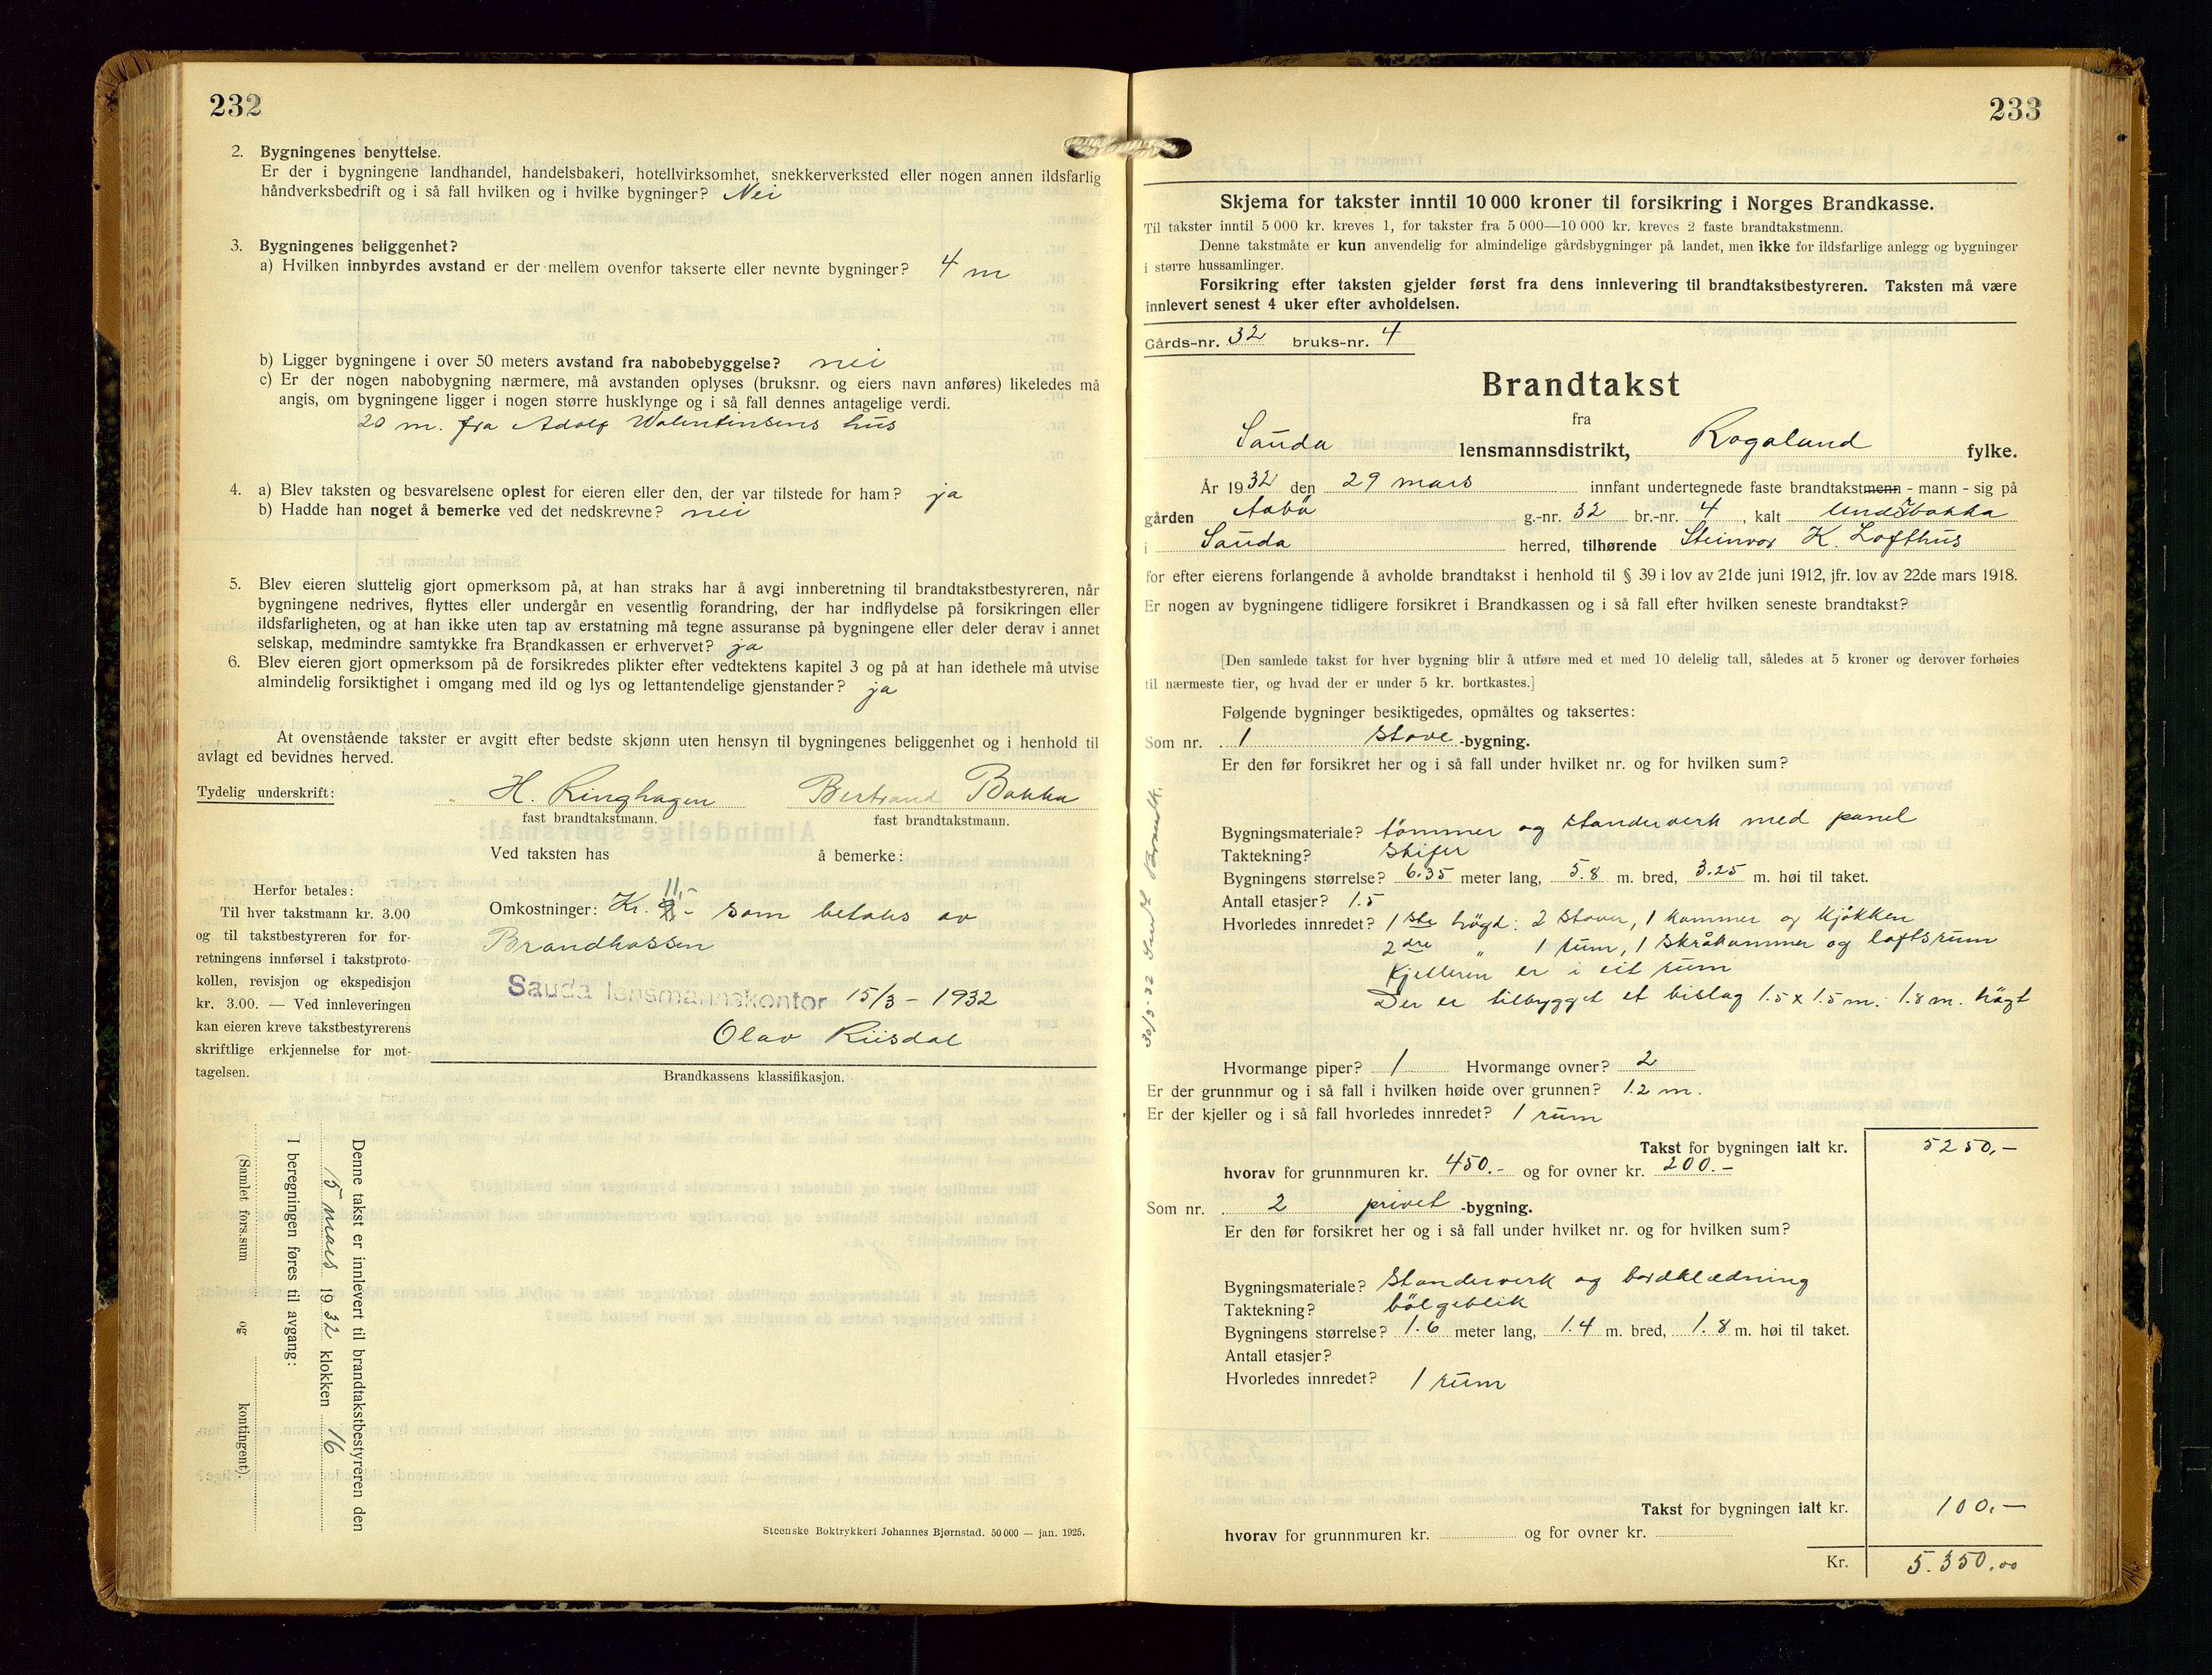 232
2. Bygningenes benyttelse.
Er der i bygningene landhandel, handelsbakeri, hotellvirksomhet, snekkerverksted eller nogen annen ildsfarlig
håndverksbedrift og i så fall hvilken og i hvilke bygninger? Nei
3. Bygningenes beliggenhet?
a) Hvilken innbyrdes avstand er der mellem ovenfor takserte eller nevnte bygninger? 4 m
b) Ligger bygningene i over 50 meters avstand fra nabobebyggelse? nei
c) Er der nogen nabobygning nærmere, må avstanden oplyses (bruksnr. og eiers navn anføres) likeledes må
angis, om bygningene ligger i nogen større husklynge og i så fall dennes antagelige verdi.
20 m. fra Adolf Walentinsens hus
4. a) Blev taksten og besvarelsene oplest for eieren eller den, der var tilstede for ham? ja
b) Hadde han noget å bemerke ved det nedskrevne? nei
5. Blev eieren sluttelig gjort opmerksom på, at han straks har å avgi innberetning til brandtakstbestyreren, når
bygningene nedrives, flyttes eller undergår en vesentlig forandring, der har indflydelse på forsikringen eller
ildsfarligheten, og at han ikke uten tap av erstatning må tegne assuranse på bygningene eller deler derav i annet
selskap, medmindre samtykke fra Brandkassen er erhvervet? ja
6. Blev eieren gjort opmerksom på de forsikredes plikter efter vedtektens kapitel 3 og på at han idethele må utvise
almindelig forsiktighet i omgang med ild og lys og lettantendelige gjenstander? ja
At ovenstående takster er avgitt efter bedste skjønn uten hensyn til bygningenes beliggenhet og i henhold til
avlagt ed bevidnes herved.
Tydelig underskrift: H. Ringhagen Bertrand Bakka
fast brandtakstmann. fast brandtakstmann.
Ved taksten has å bemerke:
Herfor betales:
Til hver takstmann kr. 3.00
og til takstbestyreren for for-
retningens innførsel i takstproto-
kollen, revisjon og ekspedisjon
kr. 3.00. — Ved innleveringen
kan eieren kreve takstbestyrerens
skriftlige erkjennelse for mot-
tagelsen.
11,-
Omkostninger: Kr. - som betales av
Brandkassen
Sauda lensmannskontor 15/3 - 1932
Olav Riisdal
Brandkassens klassifikasjon.
Denne takst er innlevert til brandtakstbestyreren den
15 mars 1932 klokken 16
I beregningen føres til avgang:
(Samlet fors.sum og kontingent).
Steenske Boktrykkeri Johannes Bjørnstad. 50 000 — jan. 1925.
233
Skjema for takster inntil 10 000 kroner til forsikring i Norges Brandkasse.
Til takster inntil 5 000 kr. kreves 1, for takster fra 5 000—10 000 kr. kreves 2 faste brandtakstmenn.
Denne takstmåte er kun anvendelig for almindelige gårdsbygninger på landet, men ikke for ildsfarlige anlegg og bygninger
i større hussamlinger.
Forsikring efter taksten gjelder først fra dens innlevering til brandtakstbestyreren. Taksten må være
innlevert senest 4 uker efter avholdelsen.
Gårds-nr. 32 bruks-nr. 4
Brandtakst
fra
Sauda lensmannsdistrikt, Rogaland fylke.
År 1932 den 29 mars innfant undertegnede faste brandtakstmenn - mann - sig på
gården Aabø g.-nr. 32 br.-nr. 4, kalt
i Sauda herred, tilhørende Steinvor K. Lofthus
for efter eierens forlangende å avholde brandtakst i henhold til § 39 i lov av 21de juni 1912, jfr. lov av 22de mars 1918.
Er nogen av bygningene tidligere forsikret i Brandkassen og i så fall efter hvilken seneste brandtakst?
[Den samlede takst for hver bygning blir å utføre med et med 10 delelig tall, således at 5 kroner og derover forhøies
til nærmeste tier, og hvad der er under 5 kr. bortkastes.]
Følgende bygninger besiktigedes, opmåltes og taksertes:
Som nr. 1 stove-bygning.
Er den før forsikret her og i så fall under hvilket nr. og for hvilken sum?
Bygningsmateriale? tømmer og standerverk med panel
Taktekning? skifer
Bygningens størrelse? 6.35 meter lang, 5.8 m. bred, 3.25 m. høi til taket.
Antall etasjer? 1.5
Hvorledes innredet? 1ste høgd: 2 stover, 1 kammer og kjøkken
2dre " 1 rum, 1 skråkammer og loftsrum
Kjelleren er i eit rum
Der er tilbygget et bislag 1.5 x 1.5 m. 1.8 m. høgt
30/3-32
Hvormange piper? 1 Hvormange ovner? 2
Er der grunnmur og i så fall i hvilken høide over grunnen? 1.2 m.
Er der kjeller og i så fall hvorledes innredet? 1 rum
Takst for bygningen ialt kr. 5250,-
hvorav for grunnmuren kr. 450.- og for ovner kr. 200.-
Som nr. 2 privet-bygning.
Er den før forsikret her og i så fall under hvilket nr. og for hvilken sum?
Bygningsmateriale? standerverk og bordklædning
Taktekning? bølgeblik
Bygningens størrelse? 1.6 meter lang, 1.4 m. bred, 1.8 m. høi til taket.
Antall etasjer?
Hvorledes innredet? 1 rum
Takst for bygningen ialt kr. 100.-
hvorav for grunnmuren kr. og for ovner kr.
Kr. 5.350.00